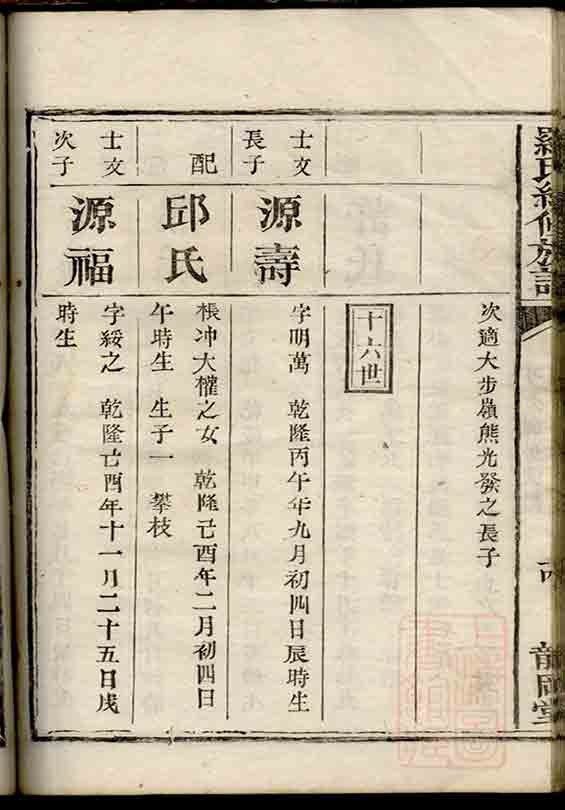 次適大步嶺熊光發之長子
十六世
士文長子
源壽
字明萬 乾隆丙午年九月初四日辰時生
配
邱氏
棖冲大權之女 乾隆己酉年二月初四日
午時生 生子一 攀枝
士文次子
源福
字綏之 乾隆己酉年十一月二十五日戌
時生